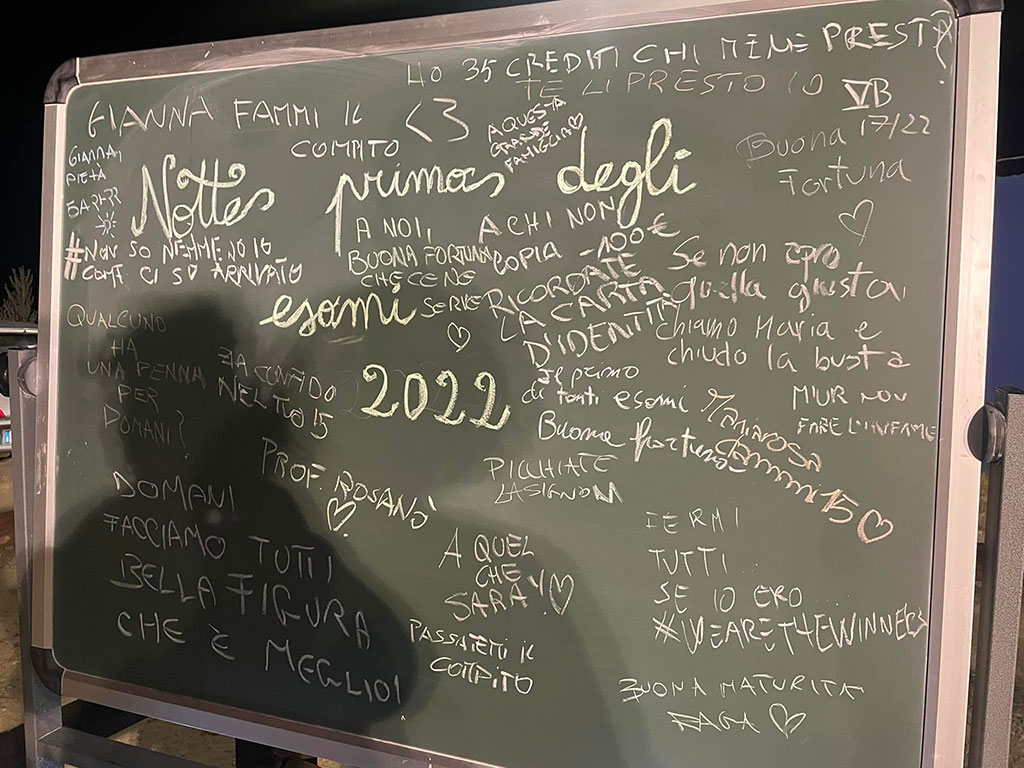 HO 35 CREDITI CHI ME NE PRESTA
TE LI PRESTO IO
VB
17/22
GIANNA FAMMI IL
COMPITO
<3
A QUESTA
GRANDE
FAMIGLIA ♡
Buona
fortuna
♡
GIANNA
PIETÀ
Notte prima degli
esami
2022
#NON SO NEMMENO IO
COME CI SO ARRIVATO
A NOI,
BUONA FORTUNA
CHE CE NE
SERVE
♡
A CHI NON
COPIA -100€
RICORDATE
LA CARTA
D'IDENTITÀ
Se non ero
quella giusta
chiamo Maria e
chiudo la busta
QUALCUNO
HA
UNA PENNA
PER
DOMANI?
ZA CONFIDO
NEL TUO 15
al primo
di tanti esami
Buona fortuna
Mariarosa
dammi 15 ♡
MIUR NON
FARE L'INFAME
PROF. ROSANÒ
♡
PICCHIATE
DOMANI
FACCIAMO TUTTI
BELLA FIGURA
CHE È MEGLIO!
A QUEL
CHE
SARÀ ♡
PASSATEMI IL
COMPITO
FERMI
TUTTI
SE IO ERO
#WEARETHEWINNERS
BUONA MATURITÀ
RAGA ♡